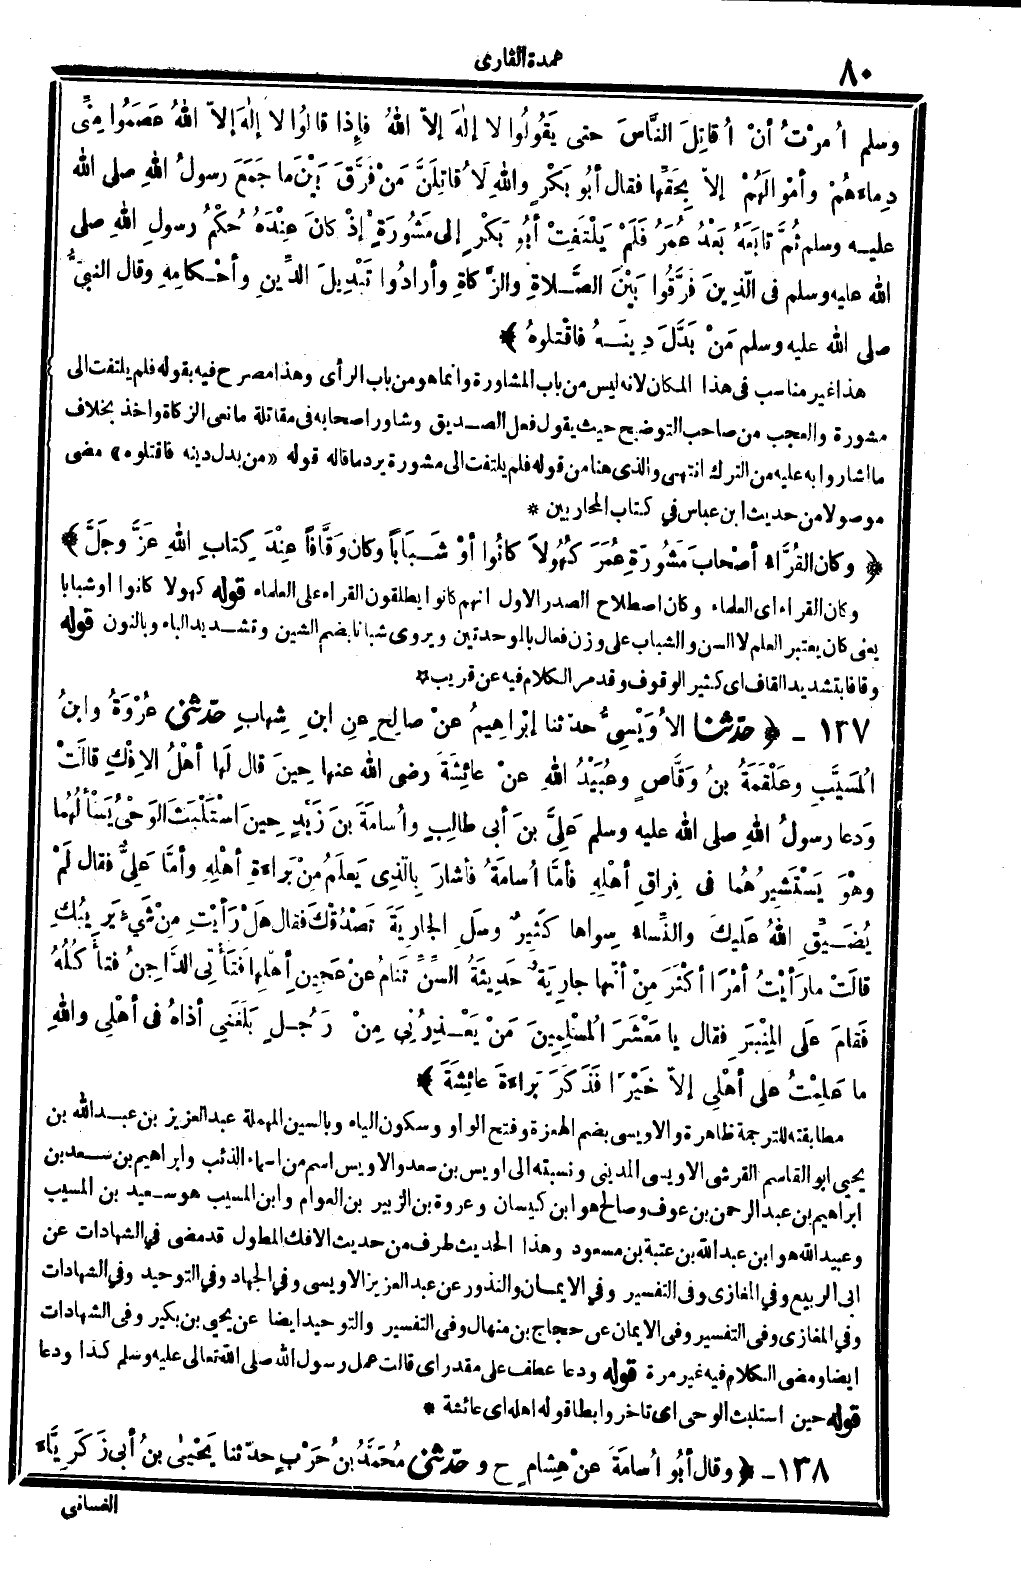 عمدة القارى
٨٠
وسلم أُمِرْتُ أنْ أُقاتِلَ النَّاسَ حتى يَقُولُوا لا إلٰهَ إلاّ اللهُ فإذا قالُوا لا إلٰهَ إلاّ اللهُ عَصَمُوا مِنِّى
دِماءَهُمْ وأمْوالَهُمْ إلاّ بِحَقِّها فقال أبُو بَكْرٍ واللهِ لَأُقاتِلَنَّ مَنْ فَرَّقَ بَيْنَ ما جَمَعَ رسولُ اللهِ صلى الله
عليه وسلم ثُمَّ تابَعَهُ بَعْدُ عُمَرُ فَلَمْ يَلْتَفِتْ أبُو بَكْرٍ إلى مَشُورَةٍ إذْ كانَ عِنْدَهُ حُكْمُ رسولِ اللهِ صلى
الله عليه وسلم فى الّذِينَ فَرَّقُوا بَيْنَ الصَّلاةِ والزَّكاةِ وأرادُوا تَبْدِيلَ الدِّينِ وأحْكامِهِ وقال النبىُّ
صلى الله عليه وسلم مَنْ بَدَّلَ دِينَهُ فاقْتُلوهُ ﴾
هذا غير مناسب فى هذا المكان لانه ليس من باب المشاورة وانما هو من باب الرأى وهذا مصرح فيه بقوله فلم يلتفت الى
مشورة والعجب من صاحب التوضيح حيث يقول فعل الصديق وشاور اصحابه فى مقاتلة مانعى الزكاة واخذ بخلاف
ما اشاروا به عليه من الترك انتهى والذى هنا من قوله فلم يلتفت الى مشورة يرد ما قاله قوله «من بدل دينه فاقتلوه» مضى
موصولا من حديث ابن عباس في كتاب المحاربين *
﴿ وكان القُرَّاءُ أصْحابَ مَشُورَةِ عُمَرَ كُهُولاً كانُوا أوْ شَبَاباً وكان وَقَّافاً عِنْدَ كِتابِ اللهِ عَزَّ وجلَّ ﴾
وكان القراء اى العلماء وكان اصطلاح الصدر الاول انهم كانوا يطلقون القراء على العلماء قوله كهولا كانوا او شبابا
يعنى كان يعتبر العلم لا السن والشباب على وزن فعال بالموحدتين ويروى شبانا بضم الشين وتشديد الباء وبالنون قوله
وقافا بتشديد القاف اى كثير الوقوف وقد مر الكلام فيه عن قريب *
١٣٧ ـ ﴿ حدّثنا الأُوَيْسِىُّ حدّثنا إبْراهِيمُ عنْ صالِحٍ عنِ ابنِ شِهابٍ حدّثنى عُرْوَةُ وابنُ
المُسَيَّبِ وعَلْقَمَةُ بنُ وَقَّاصٍ وعُبَيْدُ اللهِ عنْ عائِشَةَ رضى الله عنها حِينَ قال لَها أهْلُ الإفْكِ قالَتْ
وَدعا رسولُ اللهِ صلى الله عليه وسلم عَلِىَّ بنَ أبى طالِبٍ وأُسامَةَ بنَ زَيْدٍ حِينَ اسْتَلْبَثَ الوَحْىُ يَسْألُهُما
وهْوَ يَسْتَشِيرُهُما فى فِراقِ أهْلِهِ فأمَّا أُسامَةُ فأشارَ بِالّذِى يَعلَمُ مِنْ بَراءَةِ أهْلِهِ وأمَّا عَلِىٌّ فقال لَمْ
يُضَيِّقِ اللهُ عَلَيْكَ والنِّساءُ سِواها كَثِيرٌ وسَلِ الجارِيَةَ تَصْدُقْكَ فقال هَلْ رَأيْتِ مِنْ شَىْءٍ يَرِيبُكِ
قالَتْ ما رَأيْتُ أمْرًا أكْثَرَ مِنْ أنَّها جارِيَةٌ حَدِيثَةُ السِّنِّ تَنامُ عنْ عَجِينِ أهْلِها فَتَأْتِى الدَّاجِنُ فتأْكُلُهُ
فَقامَ عَلَى المِنْبَرِ فقال يا مَعْشَرَ المُسْلِمِينَ مَنْ يَعْذِرُنِي مِنْ رَجُلٍ بَلَغَنِي أذاهُ فى أهْلِي واللهِ
ما عَلِمْتُ على أهْلِي إلاّ خَيْرًا فَذَكَرَ بَراءَةَ عائِشَةَ ﴾
مطابقته للترجمة ظاهرة والاويسى بضم الهمزة وفتح الواو وسكون الياء وبالسين المهملة عبد العزيز بن عبد الله بن
يحيى ابو القاسم القرشى الاويسى المدينى ونسبته الى اويس بن سعد والاويس اسم من اسماء الذئب وابراهيم بن سعد بن
ابراهيم بن عبد الرحمن بن عوف وصالح هو ابن كيسان وعروة بن الزبير بن العوام وابن المسيب هو سعيد بن المسيب
وعبيد الله هو ابن عبد الله بن عتبة بن مسعود وهذا الحديث طرف من حديث الافك المطول قد مضى في الشهادات عن
ابى الربيع وفي المغازى وفى التفسير وفي الايمان والنذور عن عبد العزيز الاويسى وفي الجهاد وفي التوحيد وفي الشهادات
وفي المغازى وفى التفسير وفى الايمان عن حجاج بن منهال وفى التفسير والتوحيد ايضا عن يحيى بن بكير وفى الشهادات
ايضا ومضى الكلام فيه غير مرة قوله ودعا عطف على مقدر اى قالت عمل رسول الله صلى الله تعالى عليه وسلم كذا ودعا
قوله حين استلبث الوحى اى تاخر وابطا قوله اهله اى عائشة *
١٣٨ ـ ﴿ وقال أبُو أُسامَةَ عنْ هِشامٍ ح و حدّثنى مُحَمَّدُ بنُ حَرْبٍ حدّثنا يَحْيىٰ بنُ أبى زَكَرِيَّاءَ
الغسانى